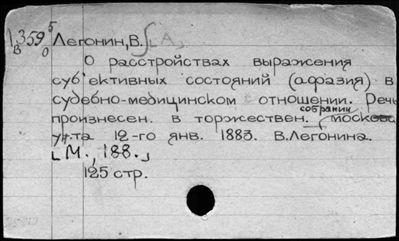 1359 5
В 0
Легонин, В. [А.]
О расстройствах выражения
субъективных состояний (афазия) в
судебно-медицинском отношении. Речь
собрании
произнесен. в торжествен. москов.
ун.та 12-го янв. 1883. В.Легонина.
[М., 188.]
125 стр.